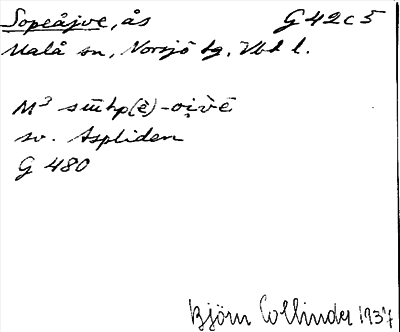 Sopeåjve, ås G 42 c 5
Malå sn, Norsjö tg, Vbt l.
M³ sūhp(è)-oi̯vē
sv. Aspliden
G 480
Björn Collinder 1937